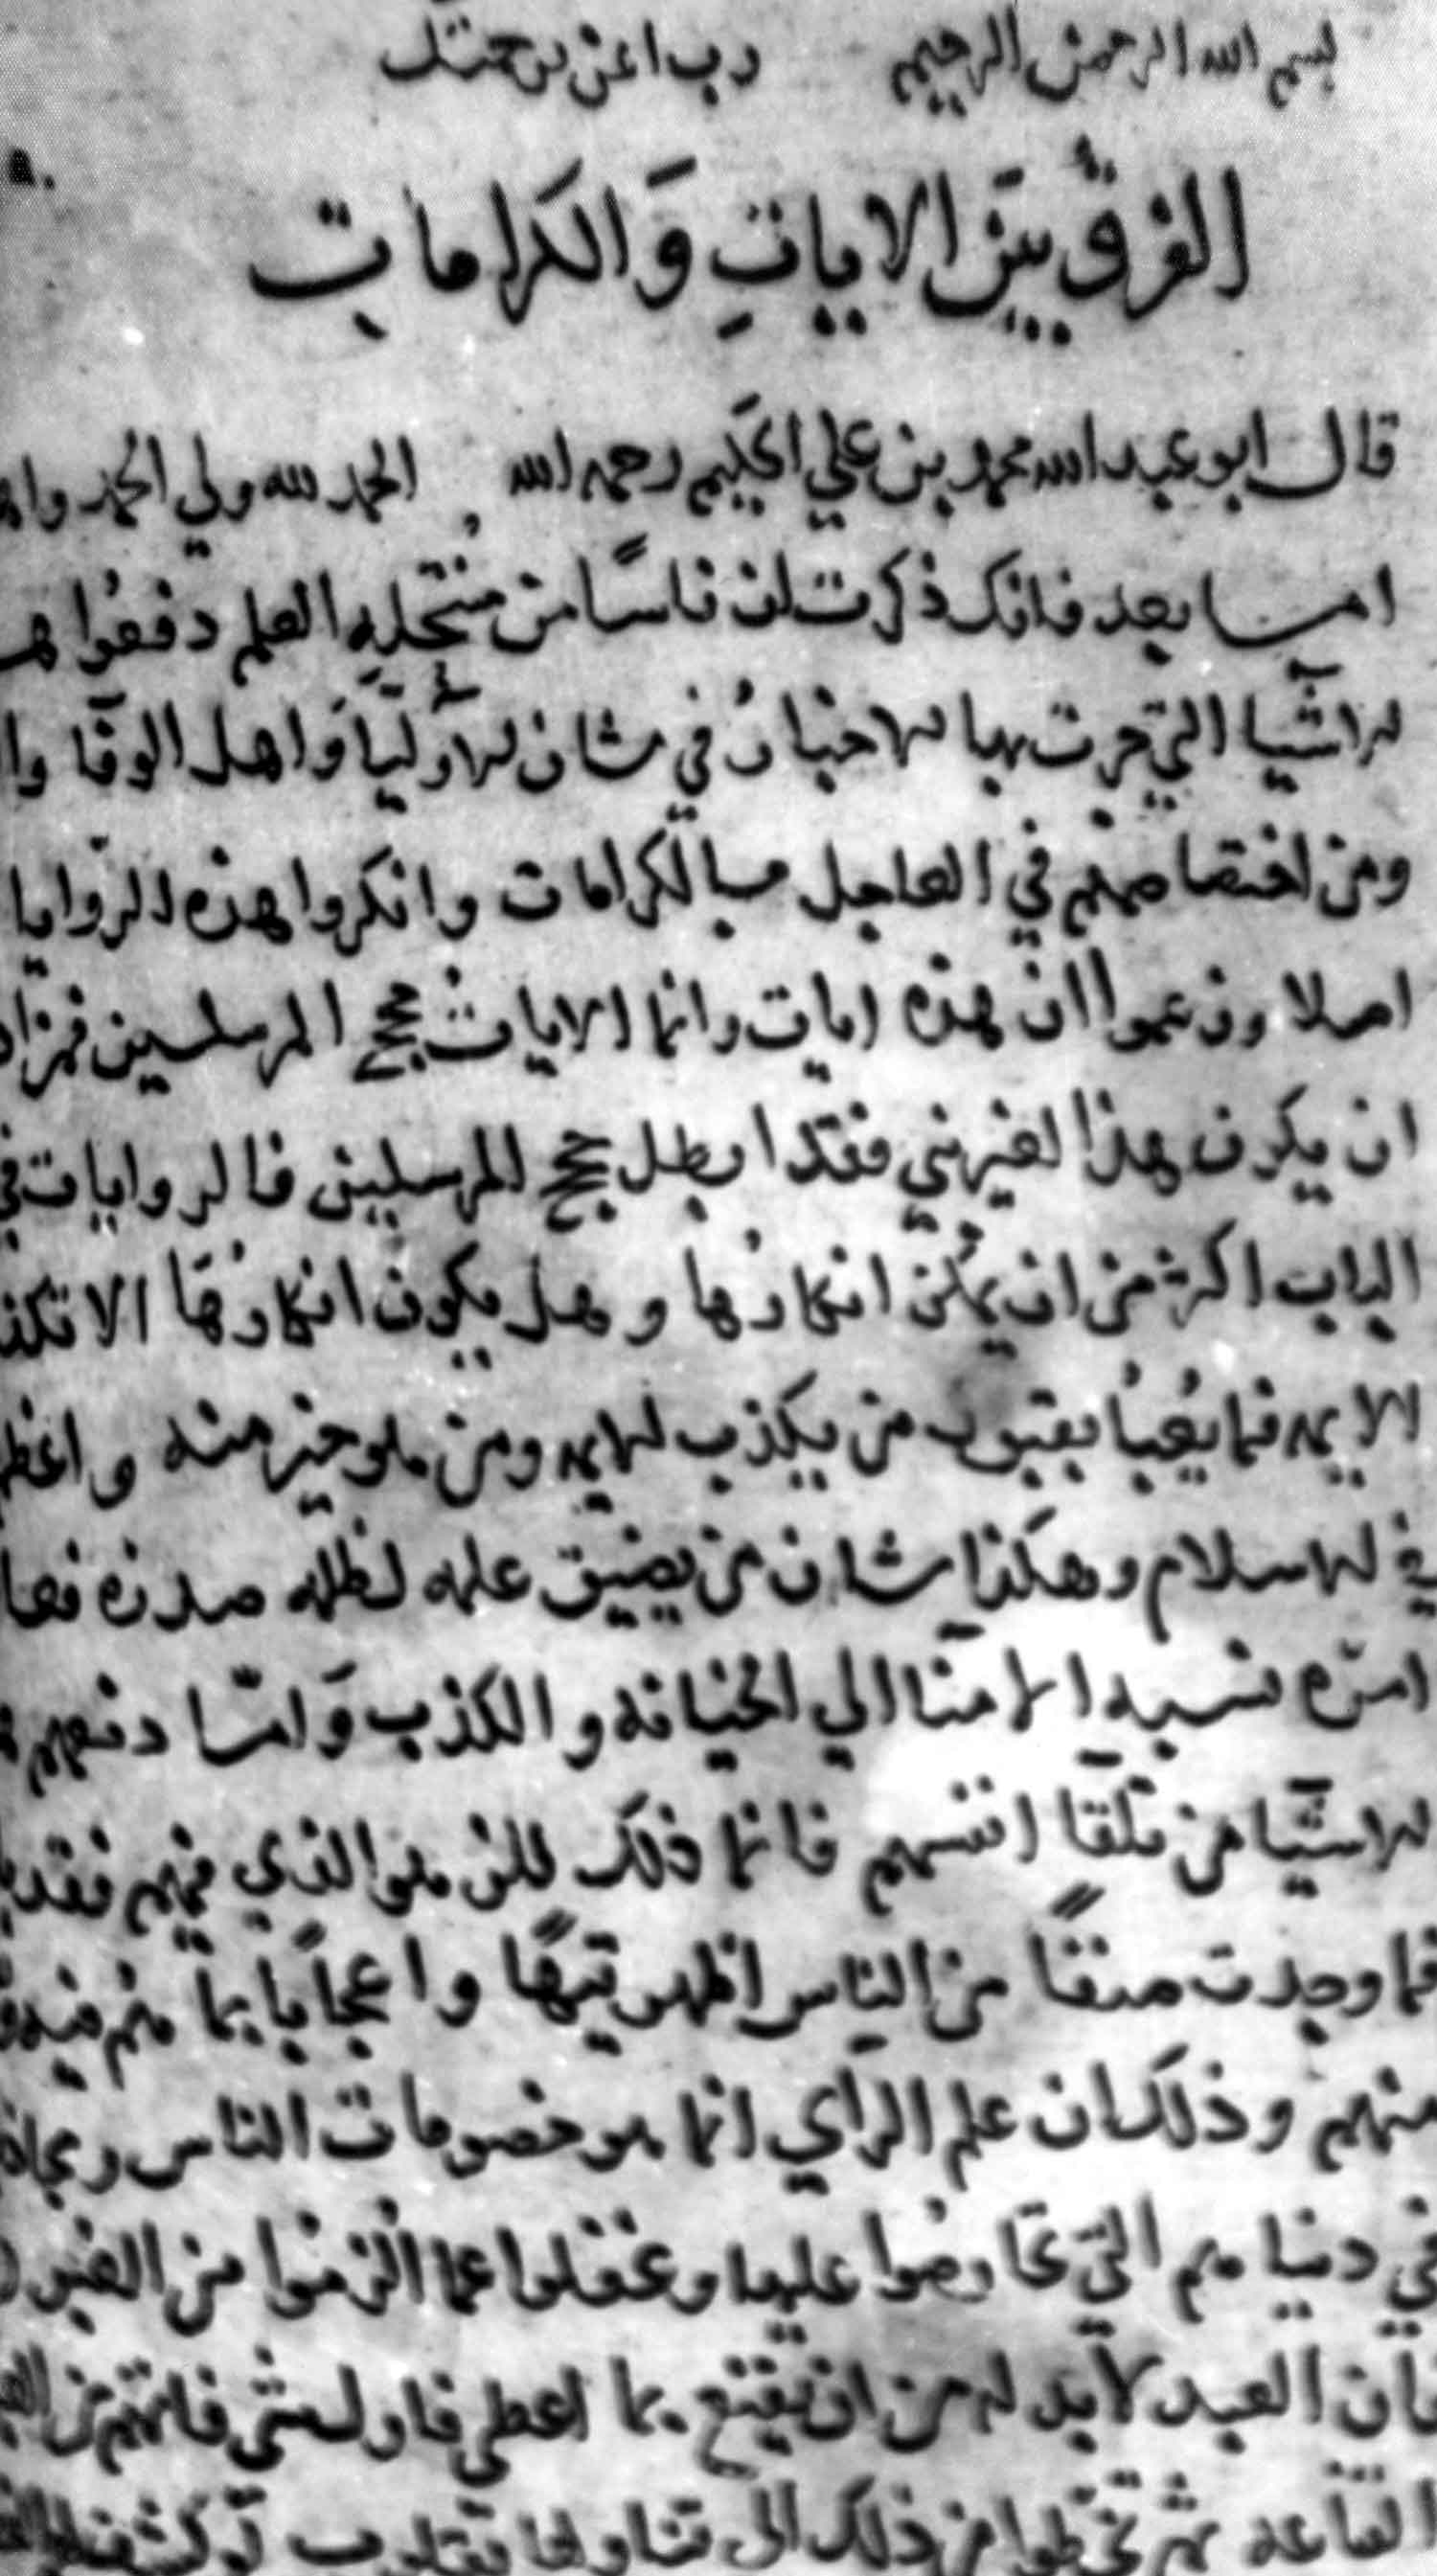 بسم الله الرحمن الرحيم رب اعن برحمتك
الفرق بين الايات والكرامات
قال ابو عبد الله محمد بن علي الحكيم رحمه الله الحمد لله ولي الحمد واه
اما بعد فانك ذكرت ان ناسا من منتحليه العلم دفعوا هـ
الاشيا التي جرت بها الاخبار في شان الاوليا واهل الوفا وا
ومن اختصاصهم في العاجل بالكرامات وانكروا هذه الروايا
اصلا وزعموا ان هذه ايات وانما الايات حجج المرسلين فمن اد
ان يكون هذا لغير نبي فقد ابطل حجج المرسلين فالروايات في
الباب اكثر من ان يمكن انكارها وهل يكون انكارها الا تكذ
الايمه فما يعبا بقبول من يكذب الايمه ومن هو خير منه واعظ
في الاسلام وهكذا شان من يضيق علمه لظلمه صدره فصا
امره نسبه الامنا الي الخيانه والكذب واما دفعهم
الاشيا من تلقا انفسهم فانما ذلك للذي فيهم فقد
فما وجدت صنفا من الناس اظهر تيها واعجابا بما هم فيه
منهم وذلك ان علم الراي انما هو خصومات الناس
في دنياهم التي تحارصوا عليها وغفلوا عما الزموا من
فان العبد لا بد له من ان يقنع بما اعطي فاول شي فاتهم من
القناعه ثم تخطوا من ذلك الي تناول